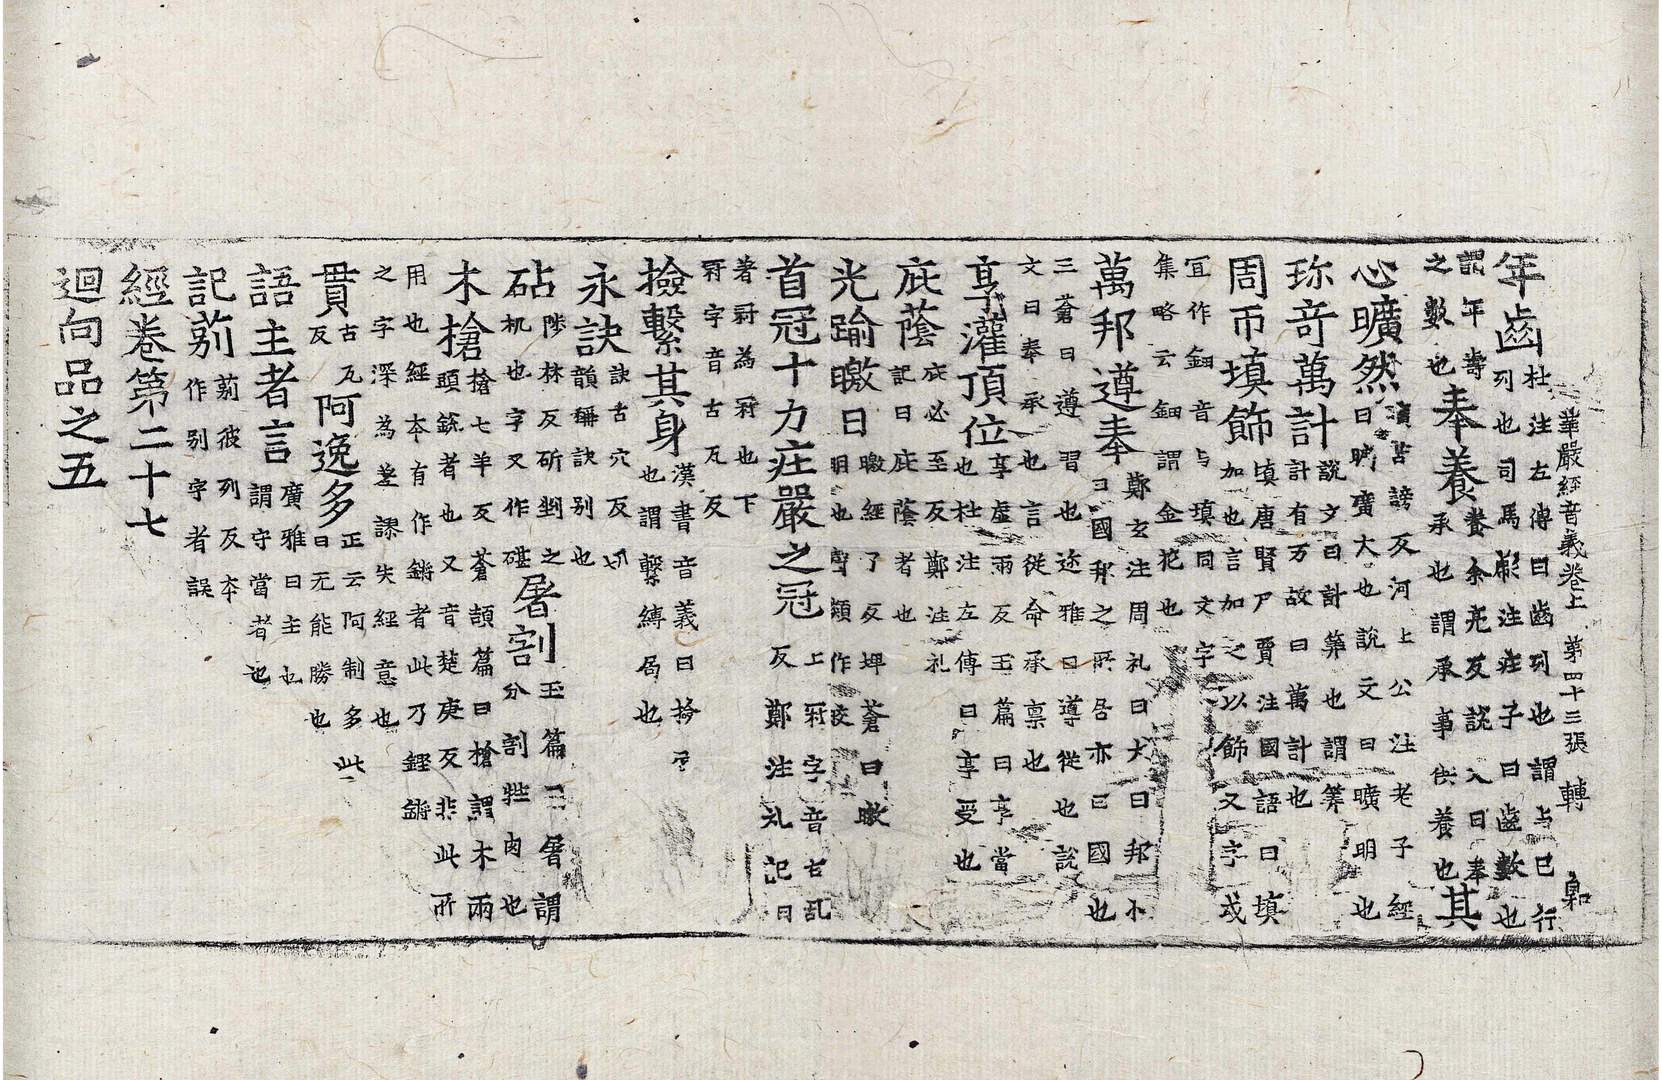 華嚴經音義卷上 第四十三張 轉
年齒杜注左傳曰齒列也謂与已行
列也司馬彪注疰子曰齒數也
謂年壽
之數也奉養養余亮反說入曰奉
承也謂承事供養也其
心曠然曠苦謗反河上公注老子經
曰曠廣大也說文曰曠明也
珎竒萬計說文曰計筭也謂筭
計有万故曰萬計也
周帀填飾填唐賢反尸賈注國語曰填
加也言加之以飾又字或
冝作鈿音与填同文字
集略云鈿謂金花也
萬邦遵奉鄭玄注周礼曰大曰邦小
曰國邦之所居亦曰國也
三蒼曰遵習也迩雅曰導從也說
文曰奉承也言從命承禀也
享灌頂位享虛兩反玉篇曰享當
也杜注左傳曰享受也
庇蔭庇必至反鄭注礼
記曰庇蔭者也
光踰曒日曒經了反埤蒼曰曒
明也聲類作皎
首冠十力疰嚴之冠上冠字音古乱
反鄭注礼記曰
著冠為冠也下
冠字音古瓦反
撿繫其身漢書音義曰撿局
也謂繫縛局也
永訣訣古穴反切
韻稱訣别也
砧陟林反斫剉之
机也字又作碪屠割玉篇曰屠謂
分割牲肉也
木槍槍七羊反蒼頡篇曰槍謂木兩
頭銳者也又音楚庚反非此所
用也經本有作鏘者此乃鏗鏘
之字深為差謬失經意也
貫古瓦
反阿逸多正云阿制多此
曰无能勝也
語主者言廣雅曰主也
謂守當者也
記莂莂彼列反本
作别字者誤
經卷第二十七
迴向品之五